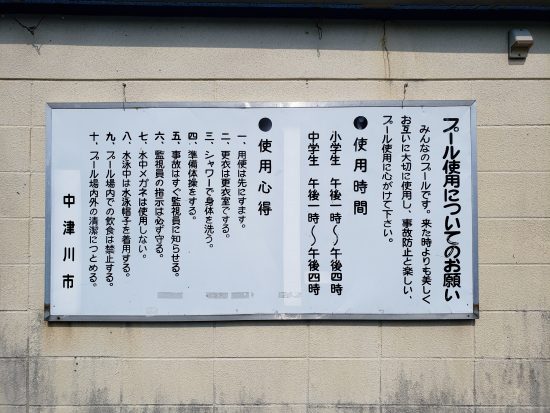 プール使用についてのお願い
みんなのプールです。来た時よりも美しく
お互いに大切に使用し、事故防止と楽しい、
プール使用に心がけて下さい。
●使用時間
小学生 午後一時〜午後四時
中学生 午後一時〜午後四時
●使用心得
一、用便は先にすます。
二、更衣は更衣室でする。
三、シャワーで身体を洗う。
四、準備体操をする。
五、事故はすぐ監視員に知らせる。
六、監視員の指示は必ず守る。
七、水中メガネは使用しない。
八、水泳中は水泳帽子を着用する。
九、プール場内での飲食は禁止する。
十、プール場内外の清潔につとめる。
中津川市